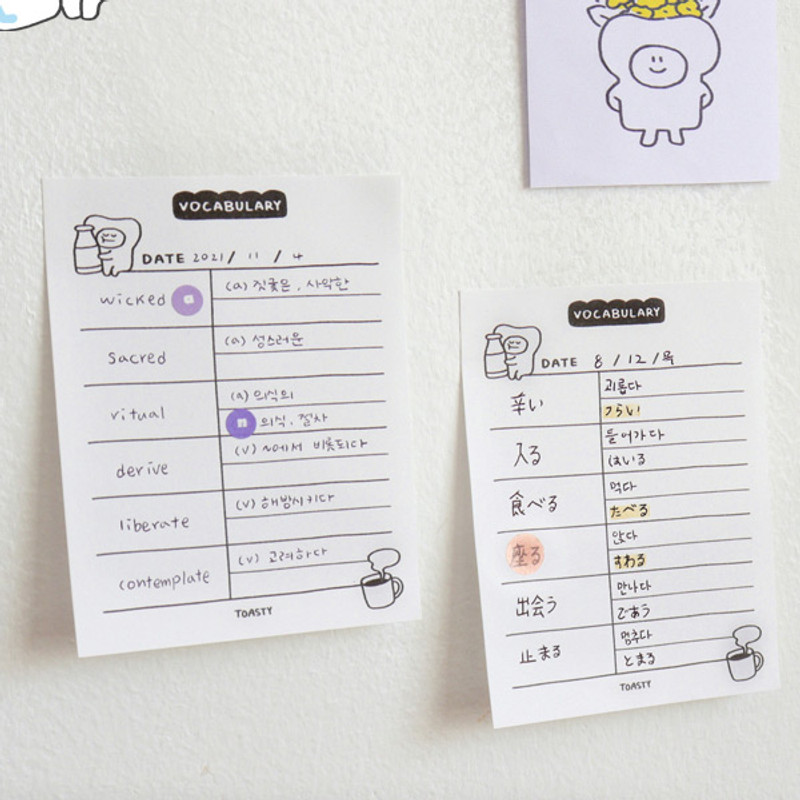 VOCABULARY
DATE 2021 / 11 / 4
wicked a (a) 짓궂은, 사악한
sacred (a) 성스러운
ritual (a) 의식의
n 의식, 절차
derive (v) ~에서 비롯되다
liberate (v) 해방시키다
contemplate (v) 고려하다
TOASTY
VOCABULARY
DATE 8 / 12 / 목
辛い 괴롭다
つらい
入る 들어가다
はいる
食べる 먹다
たべる
座る 앉다
すわる
出会う 만나다
であう
止まる 멈추다
とまる
TOASTY